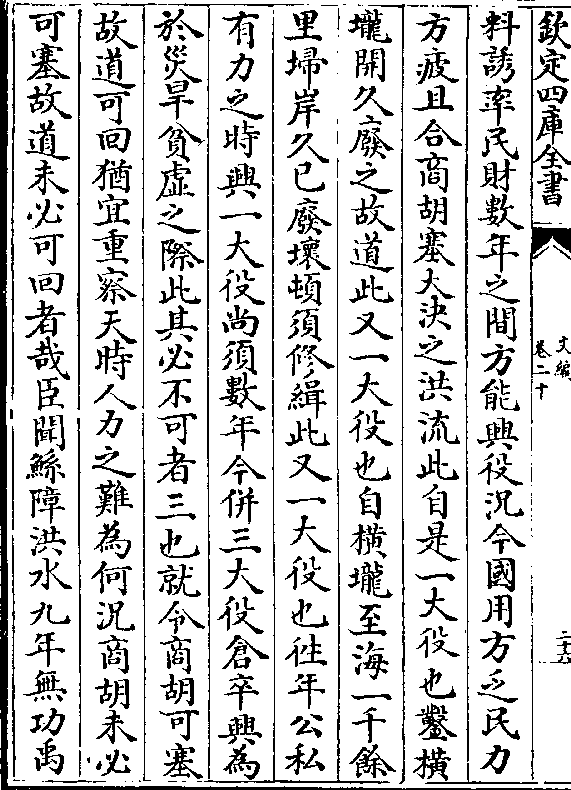 欽定四庫全書
文編
卷二十
二十六
料誘率民財數年之間方能興役況今國用方乏民力
方疲且合商胡塞大決之洪流此自是一大役也鑿橫
壠開久廢之故道此又一大役也自橫壠至海一千餘
里埽岸久已廢壞頓須修緝此又一大役也徃年公私
有力之時興一大役尚須數年今併三大役倉卒興為
於災旱貧虛之際此其必不可者三也就令商胡可塞
故道可回猶宜重察天時人力之難為何況商胡未必
可塞故道未必可回者哉臣聞鯀障洪水九年無功禹